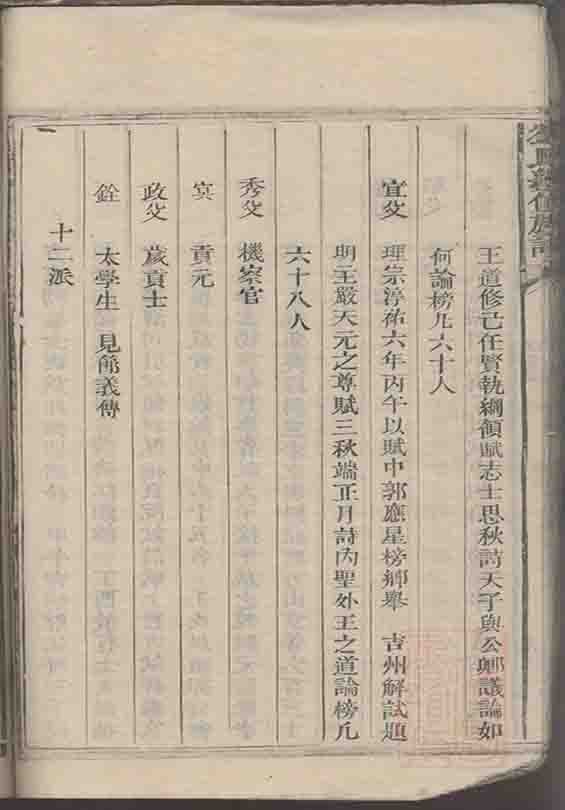 王道修己任賢執綱領賦志士思秋詩天子與公卿議論如
何論榜凡六十人
宜父　理宗淳祐六年丙午以賦中郭應星榜鄉舉　吉州解試題
明王嚴天元之尊賦三秋端正月詩內聖外王之道論榜凡
六十八人
秀父　機察官
㝠　貢元
政父　歲貢士
銓　太學生　見節義傳
十二派